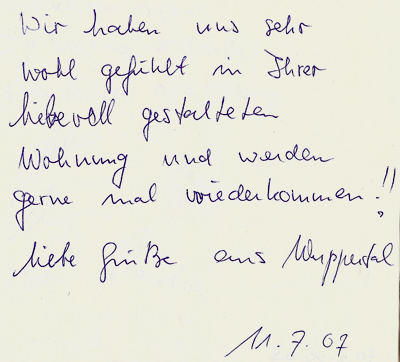 Wir haben uns sehr
wohl gefühlt in Ihrer
liebevoll gestalteten
Wohnung und werden
gerne mal wiederkommen!!
liebe Grüße aus Wuppertal
11.7.07